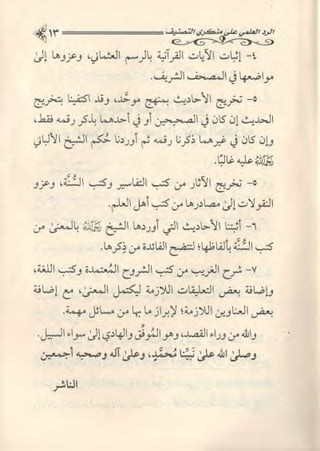 الرد العلمي على منكري التصنيف ١٣
٤- إثبات الآيات القرآنية بالرسم العثماني، وعزوها إلى
مواضعها في المصحف الشريف.
٥- تخريج الأحاديث بمنهج موحد، وقد اكتفينا بتخريج
الحديث إن كان في الصحيحين أو في أحدهما بذكر رقمه فقط،
وإن كان في غيرهما ذكرنا رقمه ثم أوردنا حُكم الشيخ الألباني
عليه غالبًا.
٥- تخريج الآثار من كتب التفاسير وكتب السُّنة، وعزو
النقولات إلى مصادرها من كتب أهل العلم.
٦- أثبتنا الأحاديث التي أوردها الشيخ بالمعنى من
كتب السُّنة بألفاظها؛ لتتضح الفائدة من ذكرها.
٧- شرح الغريب من كتب الشروح المُعتمدة وكتب اللغة،
وإضافة بعض التعليقات اللازمة ليكتمل المعنى، مع إضافة
بعض العناوين اللازمة؛ لإبراز ما بها من مسائل مهمة.
والله من وراء القصد، وهو المُوفِّق والهادي إلى سواء السبيل.
وصلى الله على نبيِّنا مُحمَّدٍ، وعلى آله وصحبه أجمعين
الناشر